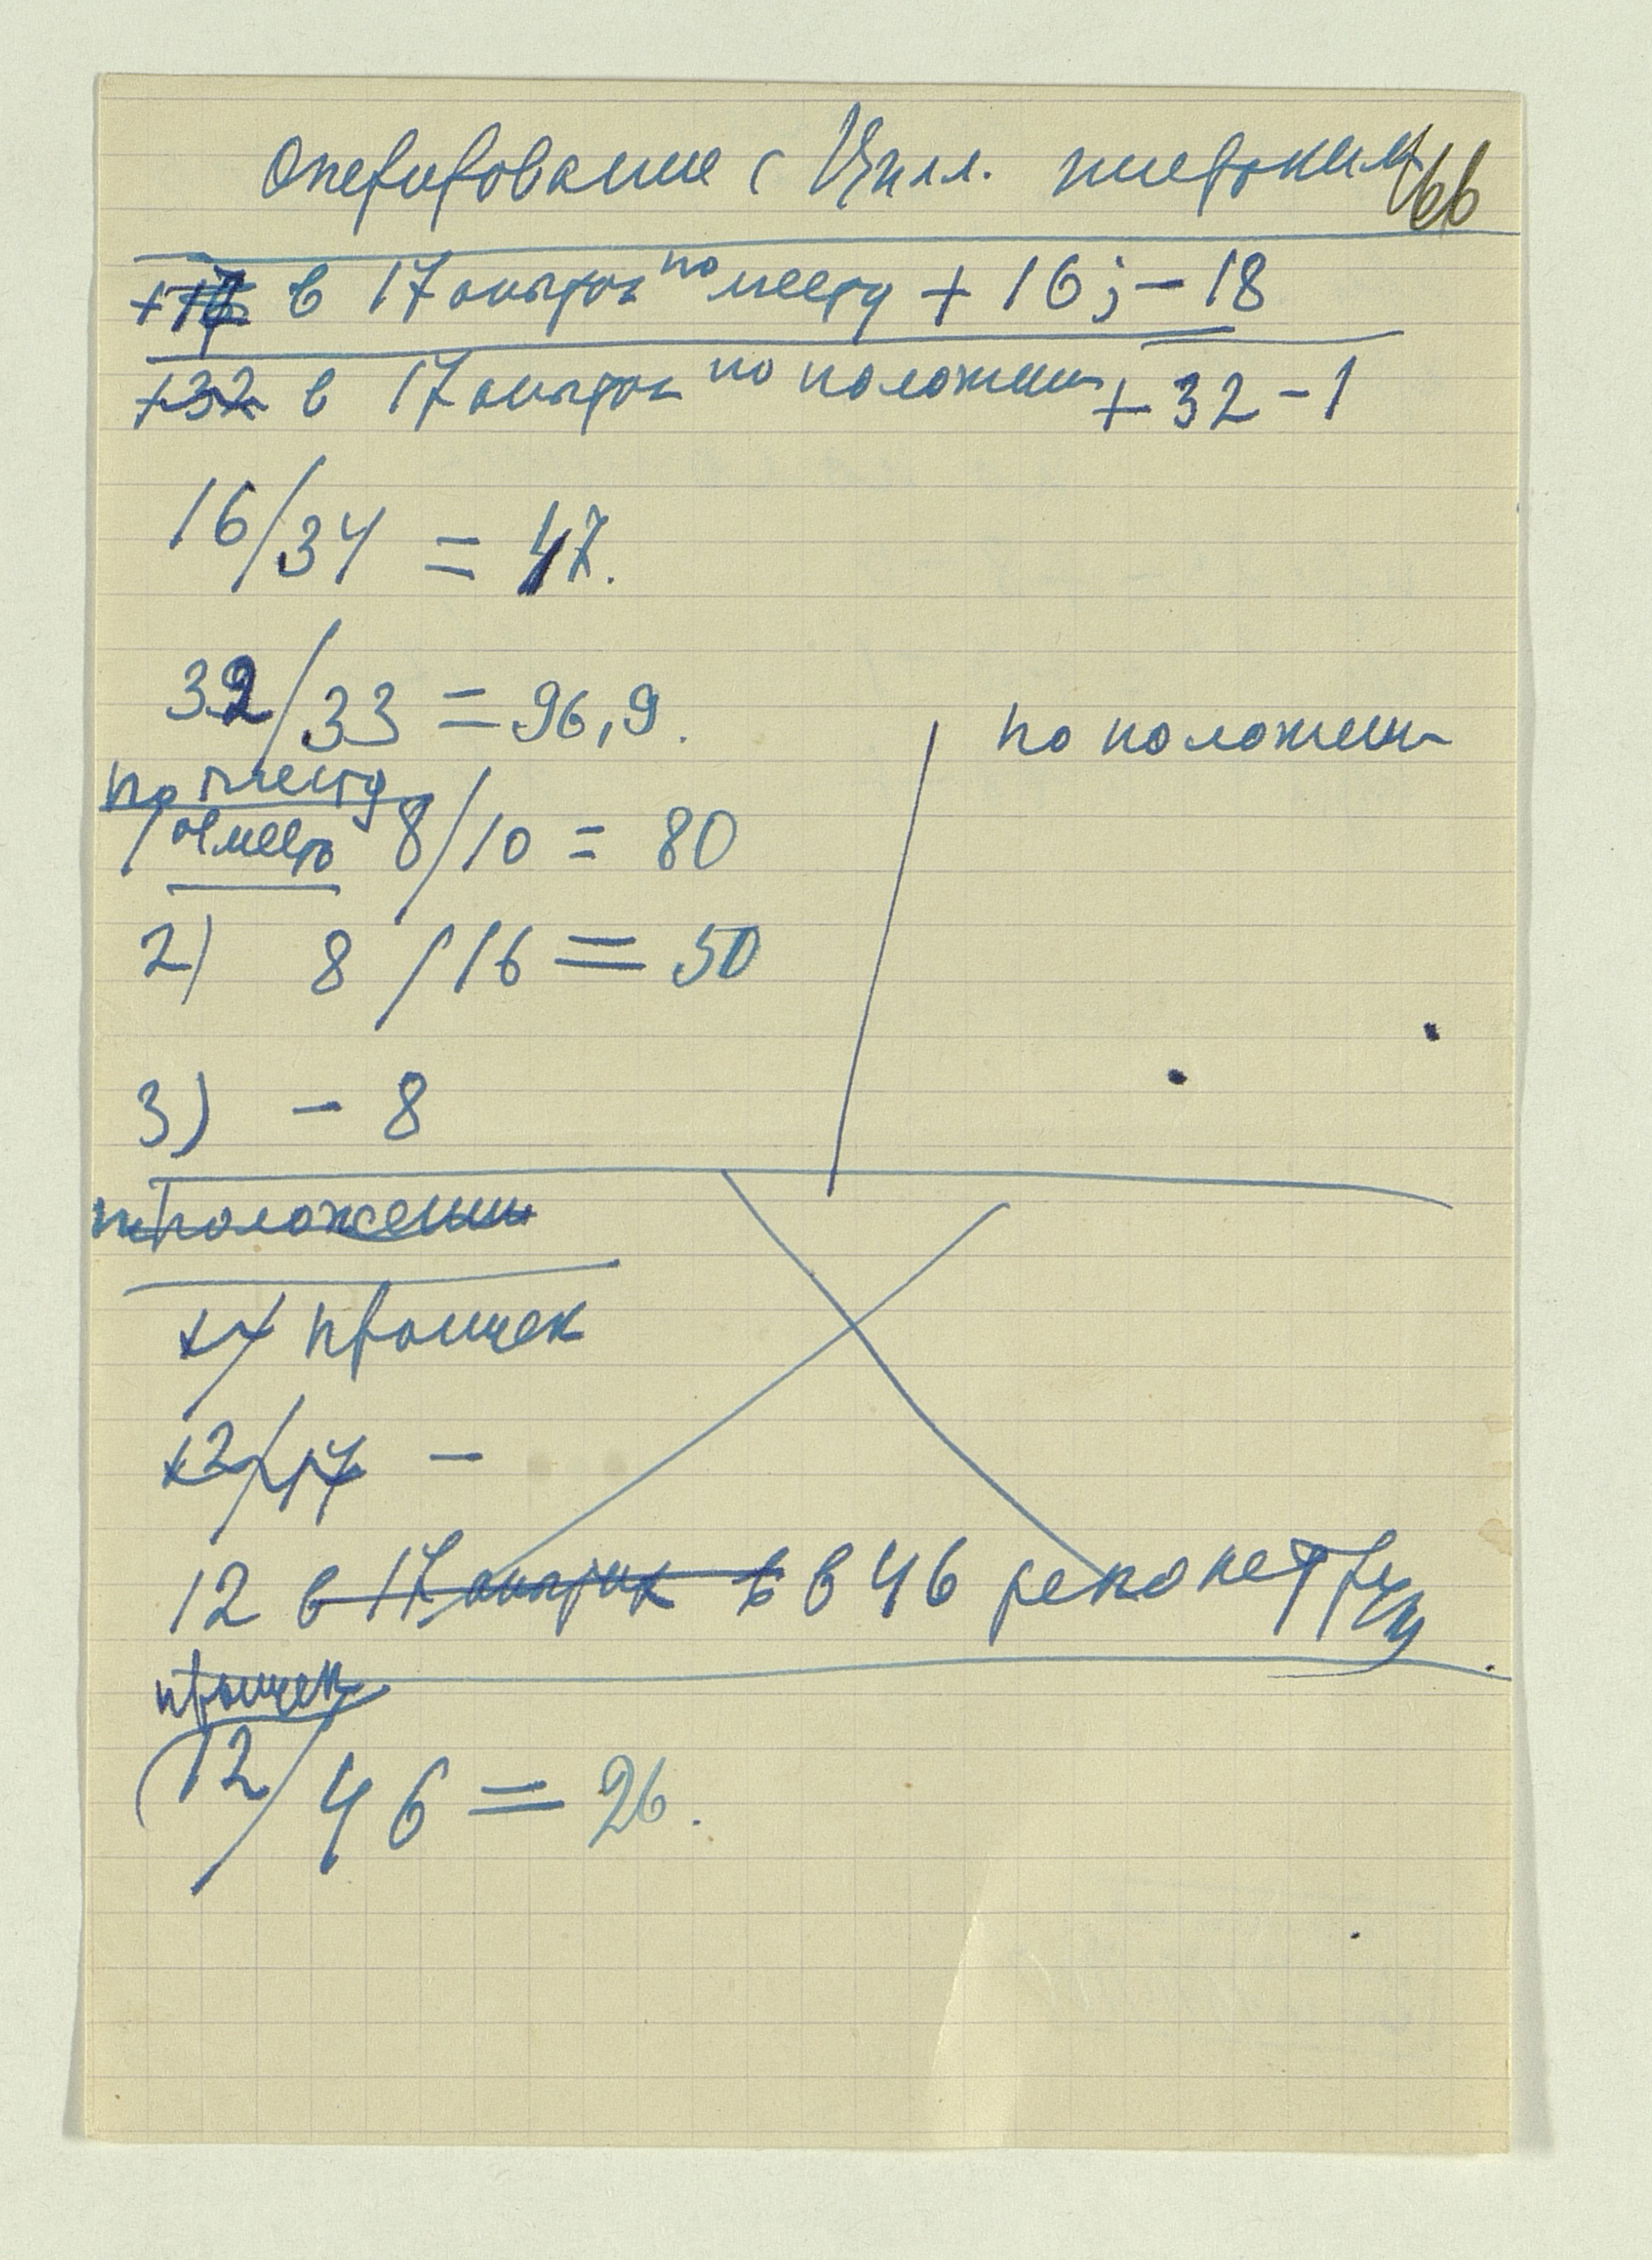 Оперирование с Цил. широким
466
+17 в 17 опытах по месту + 16; - 18
+32 в 17 опытах по положени + 32 - 1
16/34 = 47.
32/33 = 96,9.
по месту
1 место 8/10 = 80
2) 8/16 = 50
3) - 8
по положени
положении
+7 проščек
12/17 -
12 в 17 опытах в в 46 реконструкц
12/46 = 26.